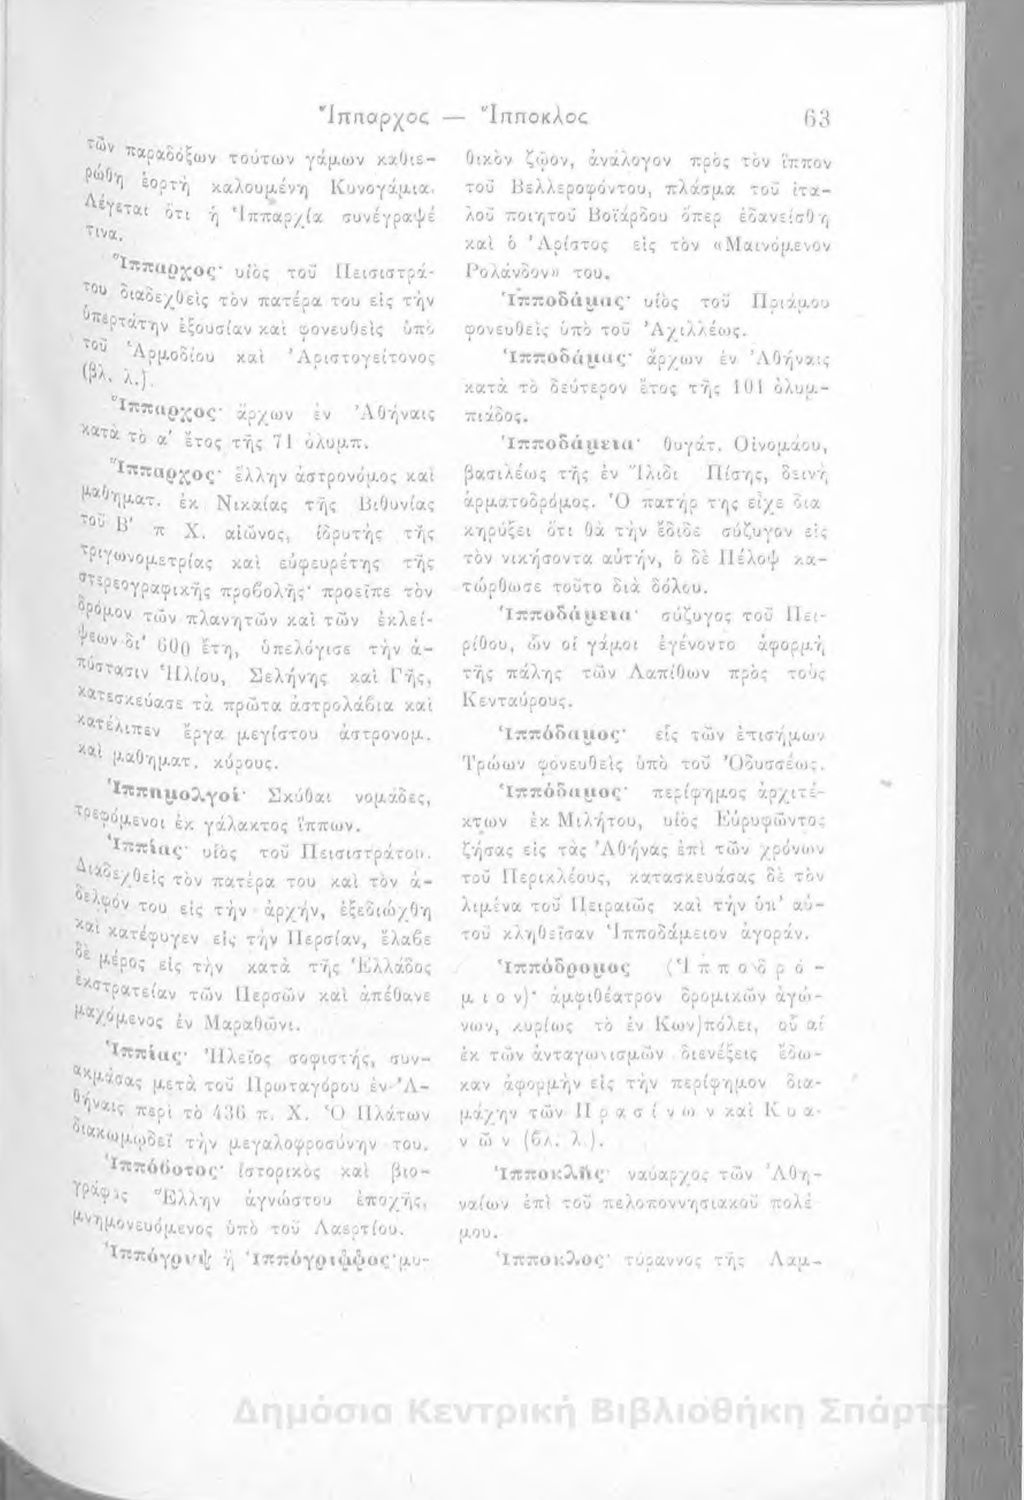 Ἵππαρχος — Ἵπποκλος 63
τῶν παραδόξων τούτων γάμων καθιε-
ρώθη ἑορτὴ καλουμένη Κυνογάμια.
Λέγεται ὅτι ἡ Ἱππαρχία συνέγραψέ
τινα.
Ἵππαρχος· υἱὸς τοῦ Πεισιστρά-
του διαδεχθεὶς τὸν πατέρα του εἰς τὴν
ὑπερτάτην ἐξουσίαν καὶ φονευθεὶς ὑπὸ
τοῦ Ἁρμοδίου καὶ Ἀριστογείτονος
(βλ. λ.).
Ἵππαρχος· ἄρχων ἐν Ἀθήναις
κατὰ τὸ α' ἔτος τῆς 71 ὀλυμπ.
Ἵππαρχος· ἕλλην ἀστρονόμος καὶ
μαθηματ. ἐκ Νικαίας τῆς Βιθυνίας
τοῦ Β' π Χ. αἰῶνος, ἱδρυτὴς τῆς
τριγωνομετρίας καὶ εὑφευρέτης τῆς
στερεογραφικῆς προβολῆς· προεῖπε τὸν
δρόμον τῶν πλανητῶν καὶ τῶν ἐκλεί-
ψεων δι' 600 ἔτη, ὑπελόγισε τὴν ἀ-
πόστασιν Ἡλίου, Σελήνης καὶ Γῆς,
κατεσκεύασε τὰ πρῶτα ἀστρολάβια καὶ
κατέλιπεν ἔργα μεγίστου ἀστρονομ.
καὶ μαθηματ. κύρους.
Ἱππημολγοί· Σκύθαι νομάδες,
τρεφόμενοι ἐκ γάλακτος ἵππων.
Ἱππίας· υἱὸς τοῦ Πεισιστράτου.
Διαδεχθεὶς τὸν πατέρα του καὶ τὸν ἀ-
δελφόν του εἰς τὴν ἀρχήν, ἐξεδιώχθη
καὶ κατέφυγεν εἰς τὴν Περσίαν, ἔλαβε
δὲ μέρος εἰς τὴν κατὰ τῆς Ἑλλάδος
ἐκστρατείαν τῶν Περσῶν καὶ ἀπέθανε
μαχόμενος ἐν Μαραθῶνι.
Ἱππίας· Ἠλεῖος σοφιστής, συν-
ακμάσας μετὰ τοῦ Πρωταγόρου ἐν Ἀ-
θήναις περὶ τὸ 436 π. Χ. Ὁ Πλάτων
διακωμῳδεῖ τὴν μεγαλοφροσύνην του.
Ἱππόβοτος· ἱστορικὸς καὶ βιο-
γράφος Ἕλλην ἀγνώστου ἐποχῆς,
μνημονευόμενος ὑπὸ τοῦ Λαερτίου.
Ἱππόγρυψ ἢ Ἱππόγριφφος· μυ-
θικὸν ζῷον, ἀνάλογον πρὸς τὸν ἵππον
τοῦ Βελλεροφόντου, πλάσμα τοῦ ἰτα-
λοῦ ποιητοῦ Βοϊάρδου ὅπερ ἐδανείσθη
καὶ ὁ Ἀρίστος εἰς τὸν «Μαινόμενον
Ρολάνδον» του.
Ἱπποδάμας· υἱὸς τοῦ Πριάμου
φονευθεὶς ὑπὸ τοῦ Ἀχιλλέως.
Ἱπποδάμας· ἄρχων ἐν Ἀθήναις
κατὰ τὸ δεύτερον ἔτος τῆς 101 ὀλυμ-
πιάδος.
Ἱπποδάμεια· θυγάτ. Οἰνομάου,
βασιλέως τῆς ἐν Ἤλιδι Πίσης, δεινὴ
ἁρματοδρόμος. Ὁ πατήρ της εἶχε δια
κηρύξει ὅτι θὰ τὴν ἔδιδε σύζυγον εἰς
τὸν νικήσοντα αὐτήν, ὁ δὲ Πέλοψ κα-
τώρθωσε τοῦτο διὰ δόλου.
Ἱπποδάμεια· σύζυγος τοῦ Πει-
ρίθου, ὧν οἱ γάμοι ἐγένοντο ἀφορμὴ
τῆς πάλης τῶν Λαπίθων πρὸς τοὺς
Κενταύρους.
Ἱππόδαμος· εἷς τῶν ἐπισήμων
Τρώων φονευθεὶς ὑπὸ τοῦ Ὀδυσσέως.
Ἱππόδαμος· περίφημος ἀρχιτέ-
κτων ἐκ Μιλήτου, υἱὸς Εὐρυφῶντος
ζήσας εἰς τὰς Ἀθήνας ἐπὶ τῶν χρόνων
τοῦ Περικλέους, κατασκευάσας δὲ τὸν
λιμένα τοῦ Πειραιῶς καὶ τὴν ὑπ' αὐ-
τοῦ κληθεῖσαν Ἱπποδάμειον ἀγοράν.
Ἱππόδρομος (Ἱ π π ο δ ρ ό -
μ ι ο ν)· ἀμφιθέατρον δρομικῶν ἀγώ-
νων, κυρίως τὸ ἐν Κων)πόλει, οὗ αἱ
ἐκ τῶν ἀνταγωνισμῶν διενέξεις ἔδω-
καν ἀφορμὴν εἰς τὴν περίφημον δια-
μάχην τῶν Π ρ α σ ί ν ω ν καὶ Κ υ α-
ν ῶ ν (βλ. λ.).
Ἱπποκλῆς· ναύαρχος τῶν Ἀθη-
ναίων ἐπὶ τοῦ πελοποννησιακοῦ πολέ
μου.
Ἵπποκλος· τύραννος τῆς Λαμ-
Δημόσια Κεντρική Βιβλιοθήκη Σπάρτης